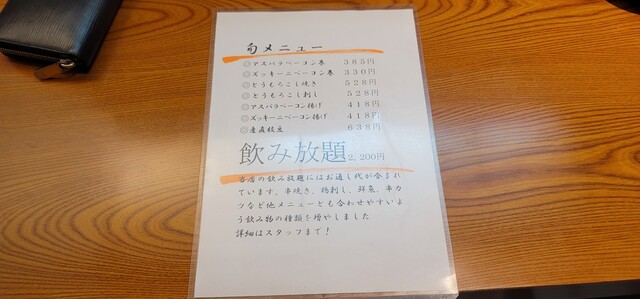 旬メニュー
◎アスパラベーコン巻 385円
◎ズッキーニベーコン巻 330円
◎とうもろこし焼き 528円
◎とうもろこし刺し 528円
◎アスパラベーコン揚げ 418円
◎ズッキーニベーコン揚げ 418円
◎産直枝豆 638円
飲み放題2,200円
当店の飲み放題にはお通し代が含まれ
ています。串焼き、鶏刺し、鮮魚、串カ
ツなど他メニューとも合わせやすいよ
う飲み物の種類を増やしました
詳細はスタッフまで!